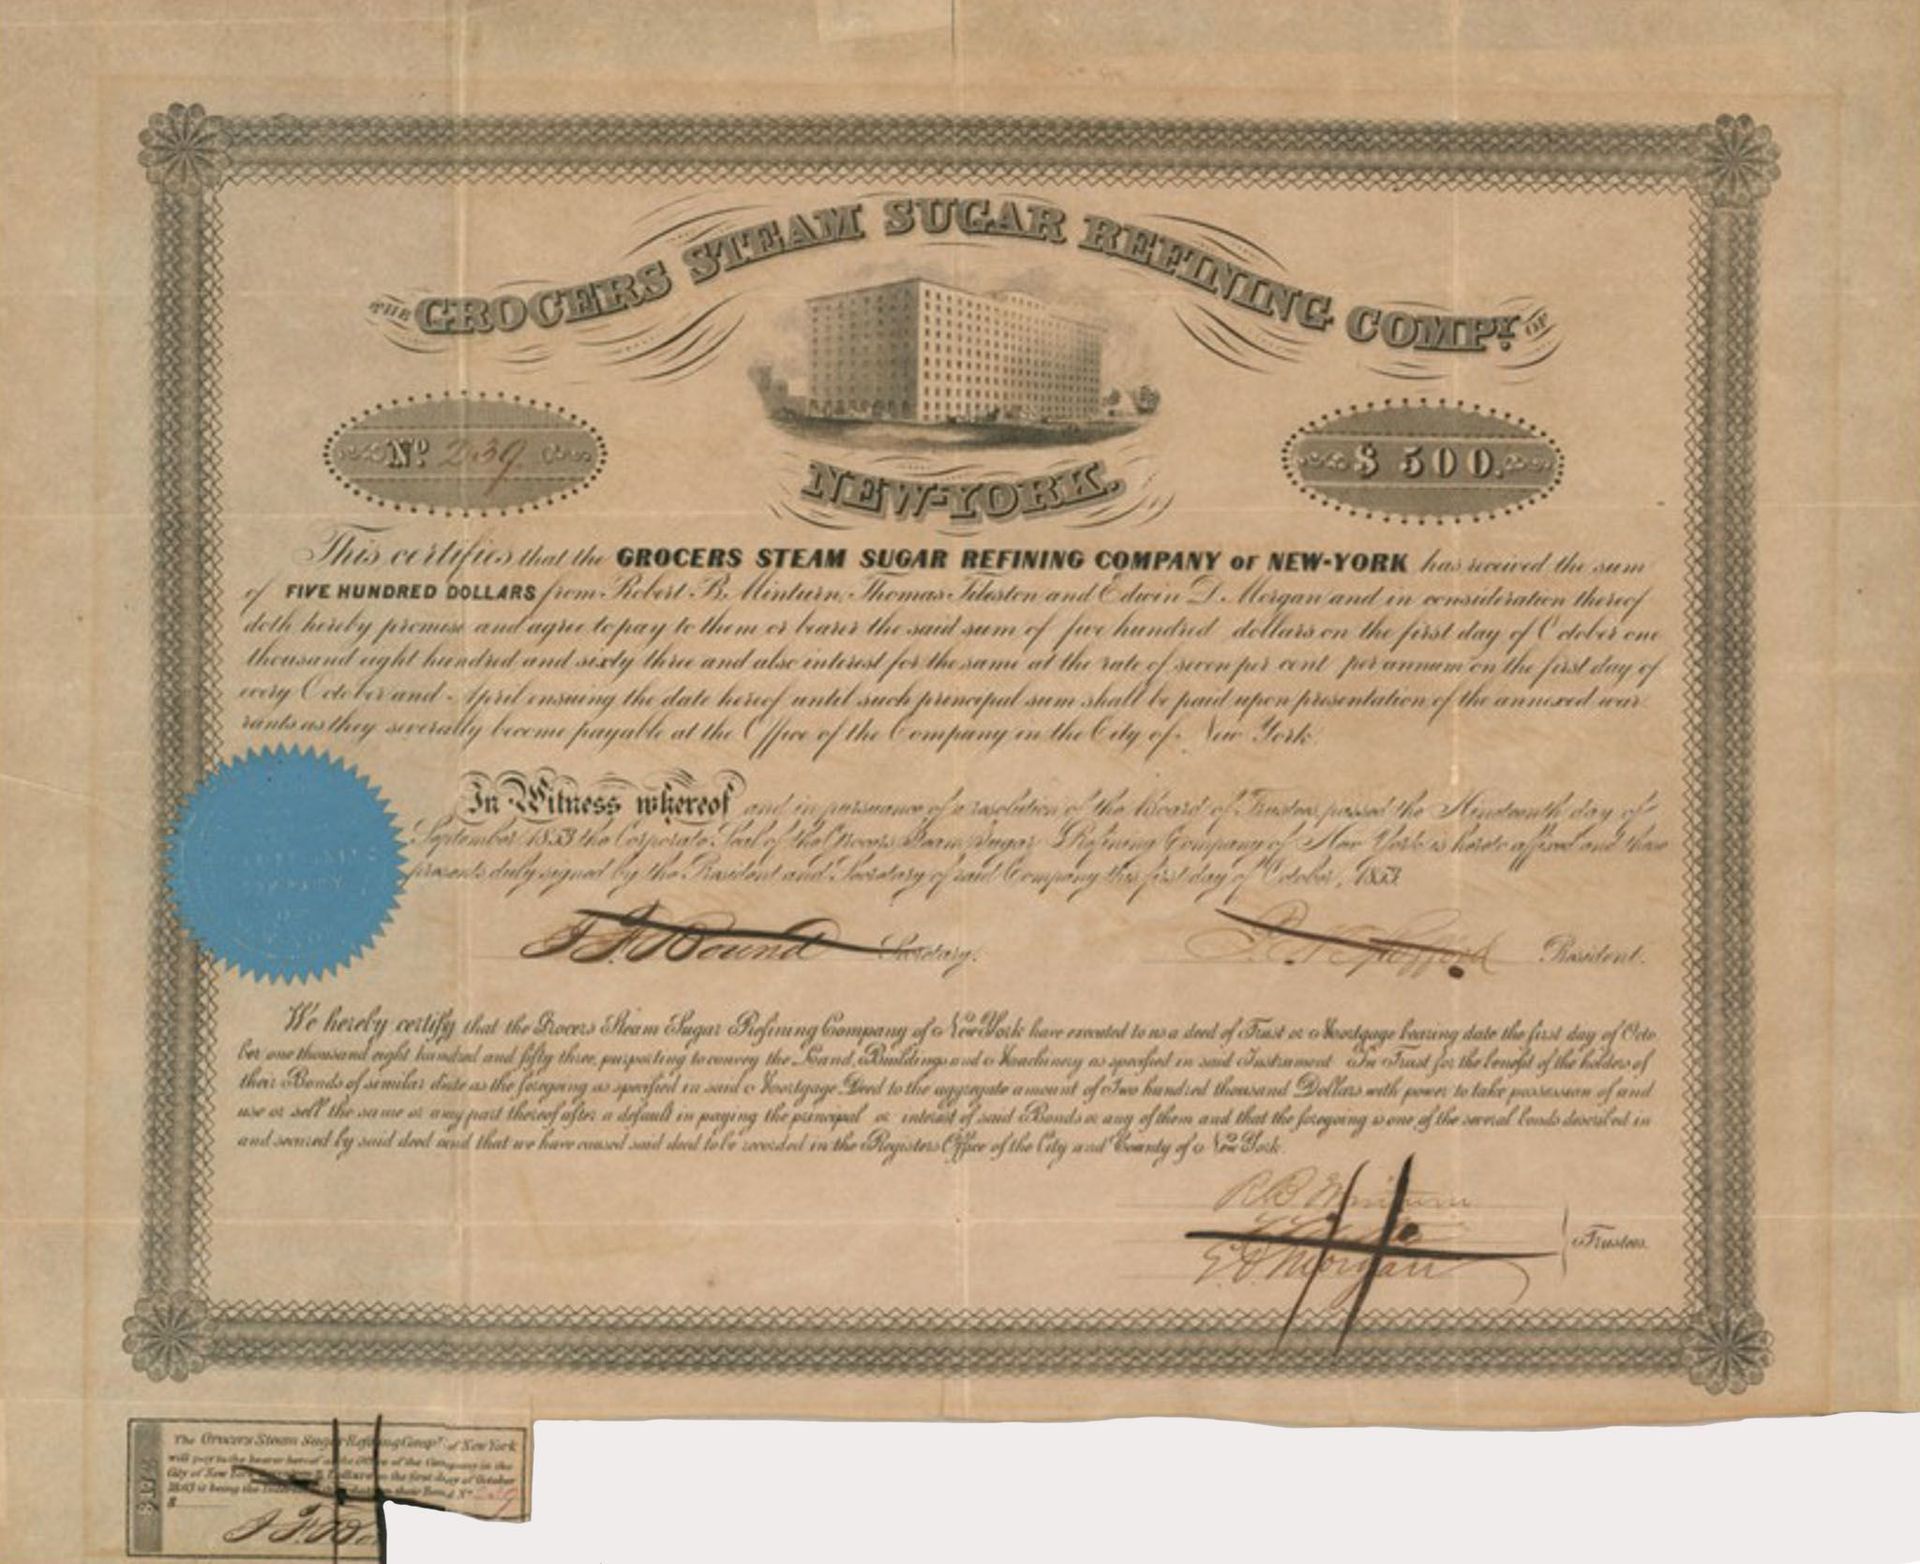 THE GROCERS STEAM SUGAR REFINING COMPY. OF
No 239
$ 500.
NEW-YORK.
This certifies that the GROCERS STEAM SUGAR REFINING COMPANY OF NEW-YORK has received the sum
of FIVE HUNDRED DOLLARS from Robert B. Minturn, Thomas Tileston and Edwin D. Morgan and in consideration thereof
doth hereby promise and agree to pay to them or bearer the said sum of five hundred dollars on the first day of October one
thousand eight hundred and sixty three and also interest for the same at the rate of seven per cent per annum on the first day of
every October and April ensuing the date hereof until such principal sum shall be paid upon presentation of the annexed war
rants as they severally become payable at the Office of the Company in the City of New York.
In Witness whereof and in pursuance of a resolution of the Board of Trustees passed the Nineteenth day of
September 1853 the Corporate Seal of the Grocers Steam Sugar Refining Company of New York is hereto affixed and these
presents duly signed by the President and Secretary of said Company this first day of October, 1853
J. F. Bound Secretary.
P. N. Spofford President.
We hereby certify that the Grocers Steam Sugar Refining Company of New York have executed to us a deed of Trust or Mortgage bearing date the first day of Octo
ber one thousand eight hundred and fifty three, purporting to convey the Land, Buildings and Machinery as specified in said Instrument In Trust for the benefit of the holders of
their Bonds of similar date as the foregoing as specified in said Mortgage Deed to the aggregate amount of Two hundred thousand Dollars with power to take possession of and
use or sell the same or any part thereof after a default in paying the principal or interest of said Bonds or any of them and that the foregoing is one of the several bonds described in
and secured by said deed and that we have caused said deed to be recorded in the Registers Office of the City and County of New York.
R B Minturn
E. D. Morgan
Trustees.
The Grocers Steam Sugar Refining Compy. of New York
will pay to the bearer hereof at the Office of the Company in the
City of New York Dollars on the first day of October
1863 being the Interest due that day on their Bond No 239
$
J. F. Bou